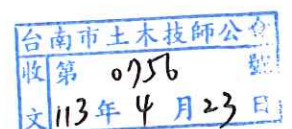 台南市土木技師公會
收第 0756 號
文 113年 4 月 23 日